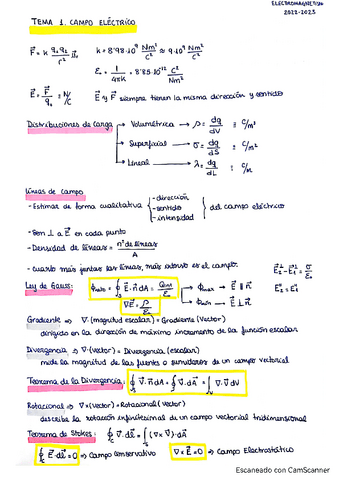 ELECTROMAGNETISMO
2022-2023
TEMA 1. CAMPO ELÉCTRICO
F⃗ = K q₁q₂/r² u⃗ᵣ
K = 8'98·10⁹ Nm²/C² ≈ 9·10⁹ Nm²/C²
ε₀ = 1/4πK = 8'85·10⁻¹² C²/Nm²
E⃗ = F⃗/q₀ ≡ N/C
E⃗ y F⃗ siempre tienen la misma dirección y sentido
Distribuciones de Carga → Volumétrica → ρ = dq/dV ≡ C/m³
→ Superficial → σ = dq/dS ≡ C/m²
→ Lineal → λ = dq/dL ≡ C/m
Líneas de campo
- Estimar de forma cualitativa { -dirección -sentido -intensidad } del campo eléctrico
- Son ⊥ a E⃗ en cada punto
- Densidad de líneas = nº de líneas/A
- cuanto más juntas las líneas, más intenso es el campo.
Ley de Gauss:
Gradiente ⇒ ∇·(magnitud escalar) = Gradiente (Vector)
dirigido en la dirección de máximo incremento de la función escalar
Divergencia ⇒ ∇·(vector) = Divergencia (escalar)
mide la magnitud de las fuentes o sumideros de un campo vectorial
Teorema de la Divergencia:
Rotacional ⇒ ∇×(vector) = Rotacional (vector)
describe la rotación infinitesimal de un campo vectorial tridimensional
Teorema de Stokes:
∮ E⃗·dl⃗ = 0 ⇒ Campo conservativo
∇×E⃗ = 0 ⇒ Campo Electrostático
Escaneado con CamScanner